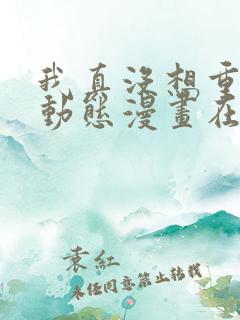 我真没想重
動態漫畫在
袁紅
未经同意禁止转载